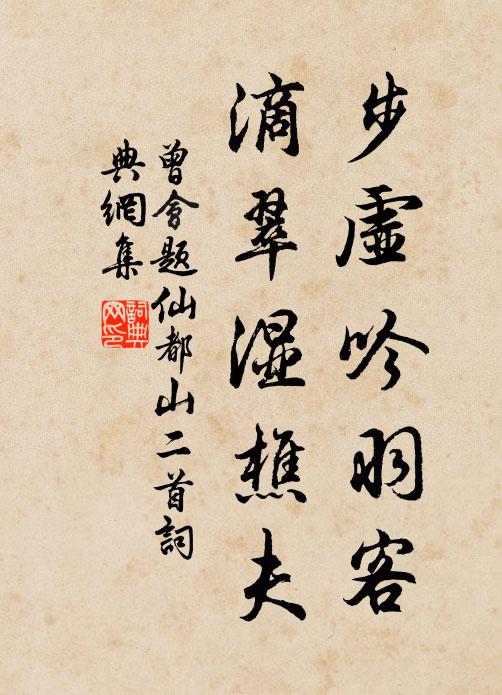 步虛吟羽客
滴翠濕樵夫
曾會題仙都山二首詞
典網集
詞典
网印